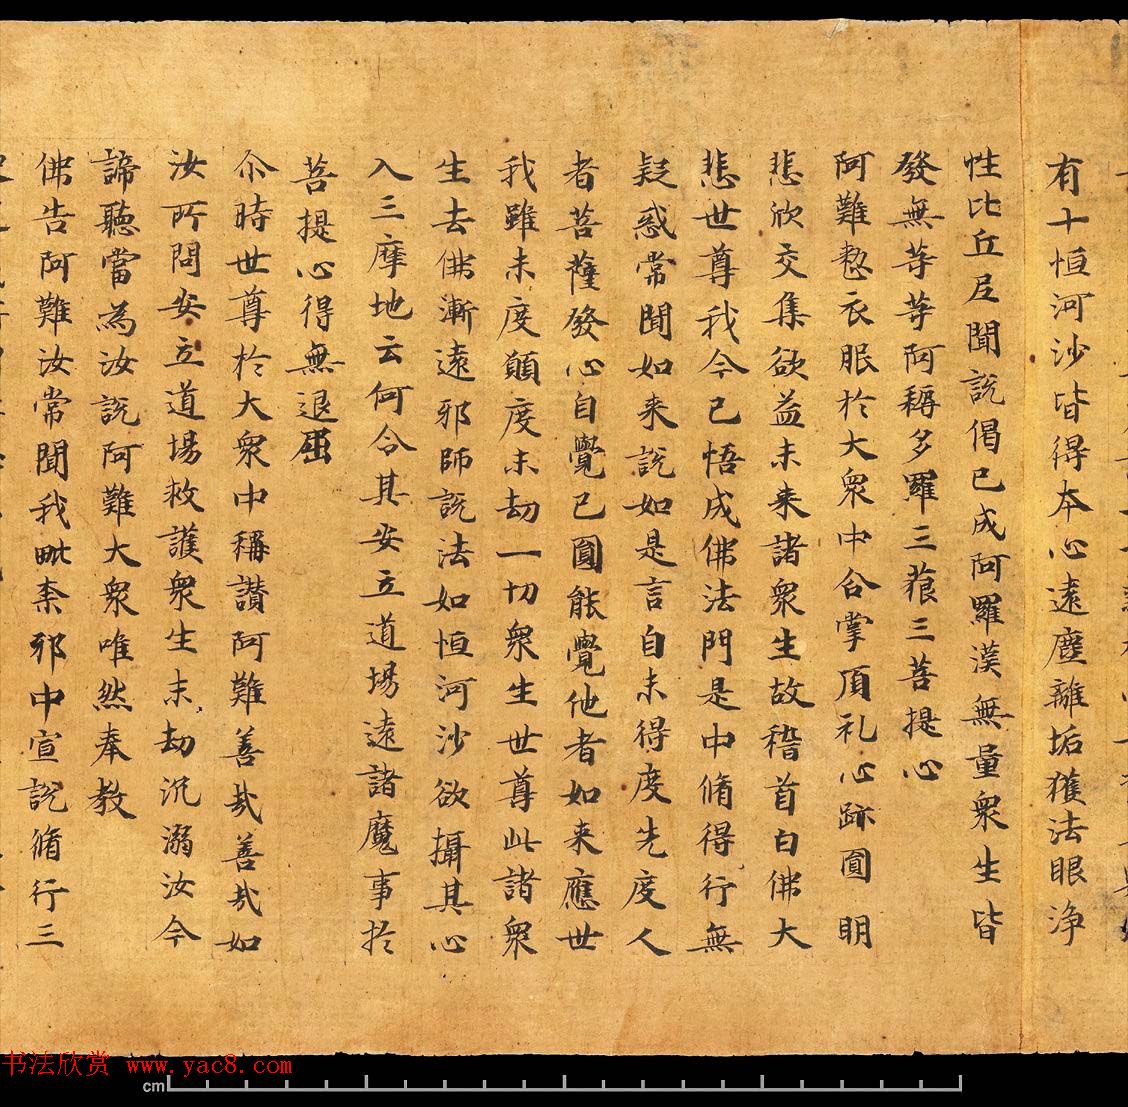 有十恒河沙皆得本心遠塵離垢獲法眼淨
性比丘尼聞說偈已成阿羅漢無量衆生皆
發無等等阿耨多羅三藐三菩提心
阿難整衣服於大衆中合掌頂礼心跡圓明
悲欣交集欲益未来諸衆生故稽首白佛大
悲世尊我今已悟成佛法門是中脩得行無
疑惑常聞如来說如是言自未得度先度人
者菩薩發心自覺已圓能覺他者如来應世
我雖未度願度末劫一切衆生世尊此諸衆
生去佛漸遠邪師說法如恒河沙欲攝其心
入三摩地云何令其安立道場遠諸魔事於
菩提心得無退屈
尒時世尊於大衆中稱讚阿難善哉善哉如
汝所問安立道場救護衆生末劫沉溺汝今
諦聽當為汝說阿難大衆唯然奉教
佛告阿難汝常聞我毗柰邪中宣說脩行三
书法欣赏 www.yac8.com
cm